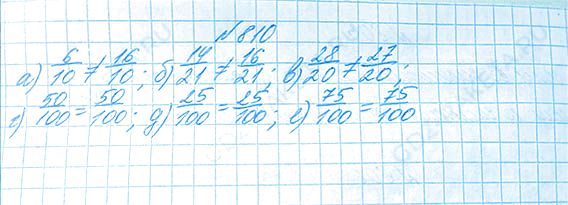 № 810
а) 6/10 ≠ 16/10; б) 14/21 ≠ 16/21; в) 28/20 ≠ 27/20;
г) 50/100 = 50/100; д) 25/100 = 25/100; е) 75/100 = 75/100